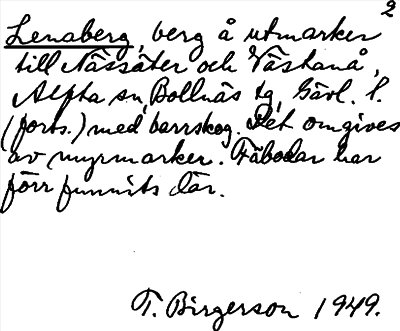 2
Lenaberg, berg å utmarker
till Nässäter och Västanå,
Alfta sn, Bollnäs tg, Gävl. l.
(forts.) med barrskog. Det omgives
av myrmarker. Fäbodar har
förr funnits där.
T. Birgerson 1949.